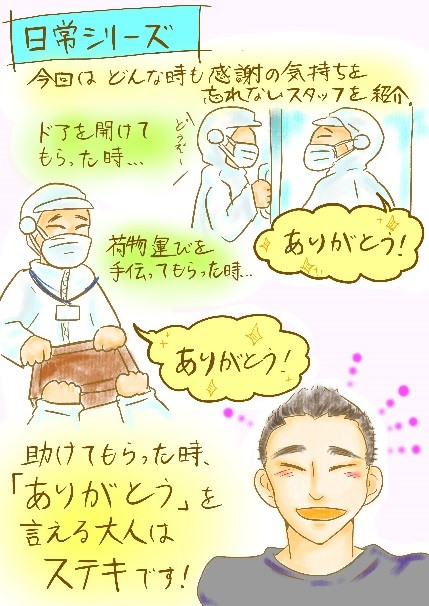 日常シリーズ
今回は どんな時も感謝の気持ちを
忘れないスタッフを紹介。
ドアを開けて
もらった時…
どうぞー
ありがとう!
荷物運びを
手伝ってもらった時…
ありがとう!
助けてもらった時、
「ありがとう」を
言える大人は
ステキです!